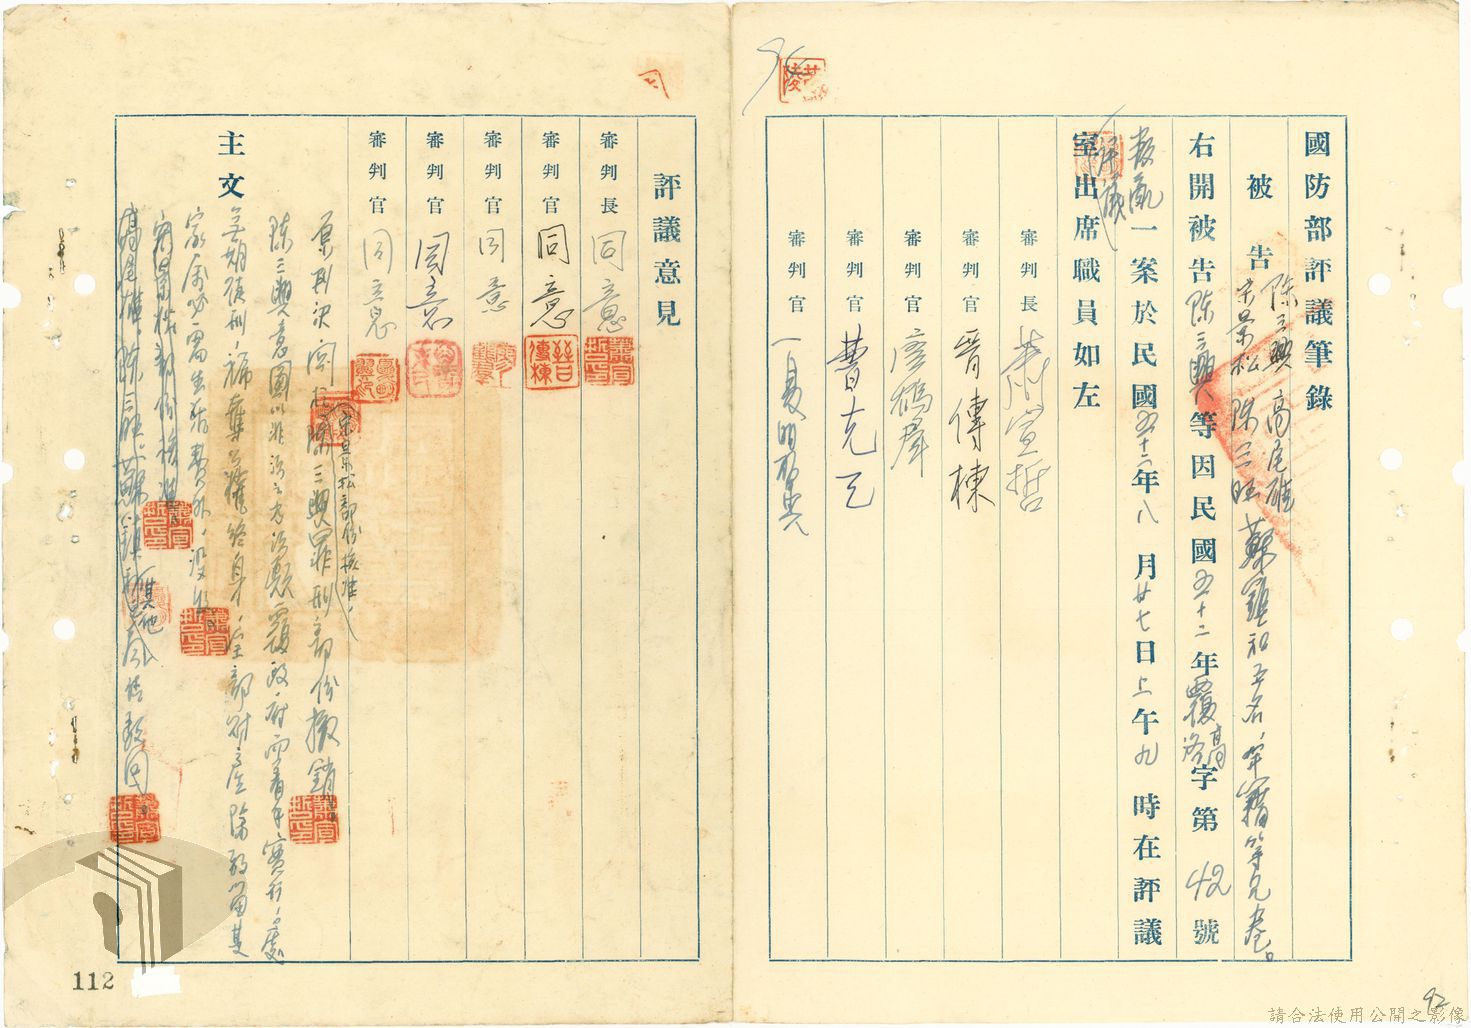 國防部評議筆錄
被告 陳三興 高尾雄
宋景松 陳三旺 蘇鎮和 五名,年籍等見卷。
右開被告陳三興等因民國五十二年覆高字第42號
叛亂一案於民國五十二年八月廿七日上午九時在評議
室出席職員如左
審判長 蕭宣哲
審判官 晉傳棟
審判官
審判官 曹克己
審判官
評議意見
審判長 同意
審判官 同意
審判官 同意
審判官 同意
審判官 同意
主文
原判決關於陳三興罪刑部份撤銷
宋景松部份核准,
陳三興意圖以非法之方法顛覆政府而著手實行,處
無期徒刑,褫奪公權終身,全部財產除酌留其
家屬必需生活費外,沒收
宋景松部份核准
高尾雄、陳三旺、蘇鎮和
其他
112
92
請合法使用公開之影像